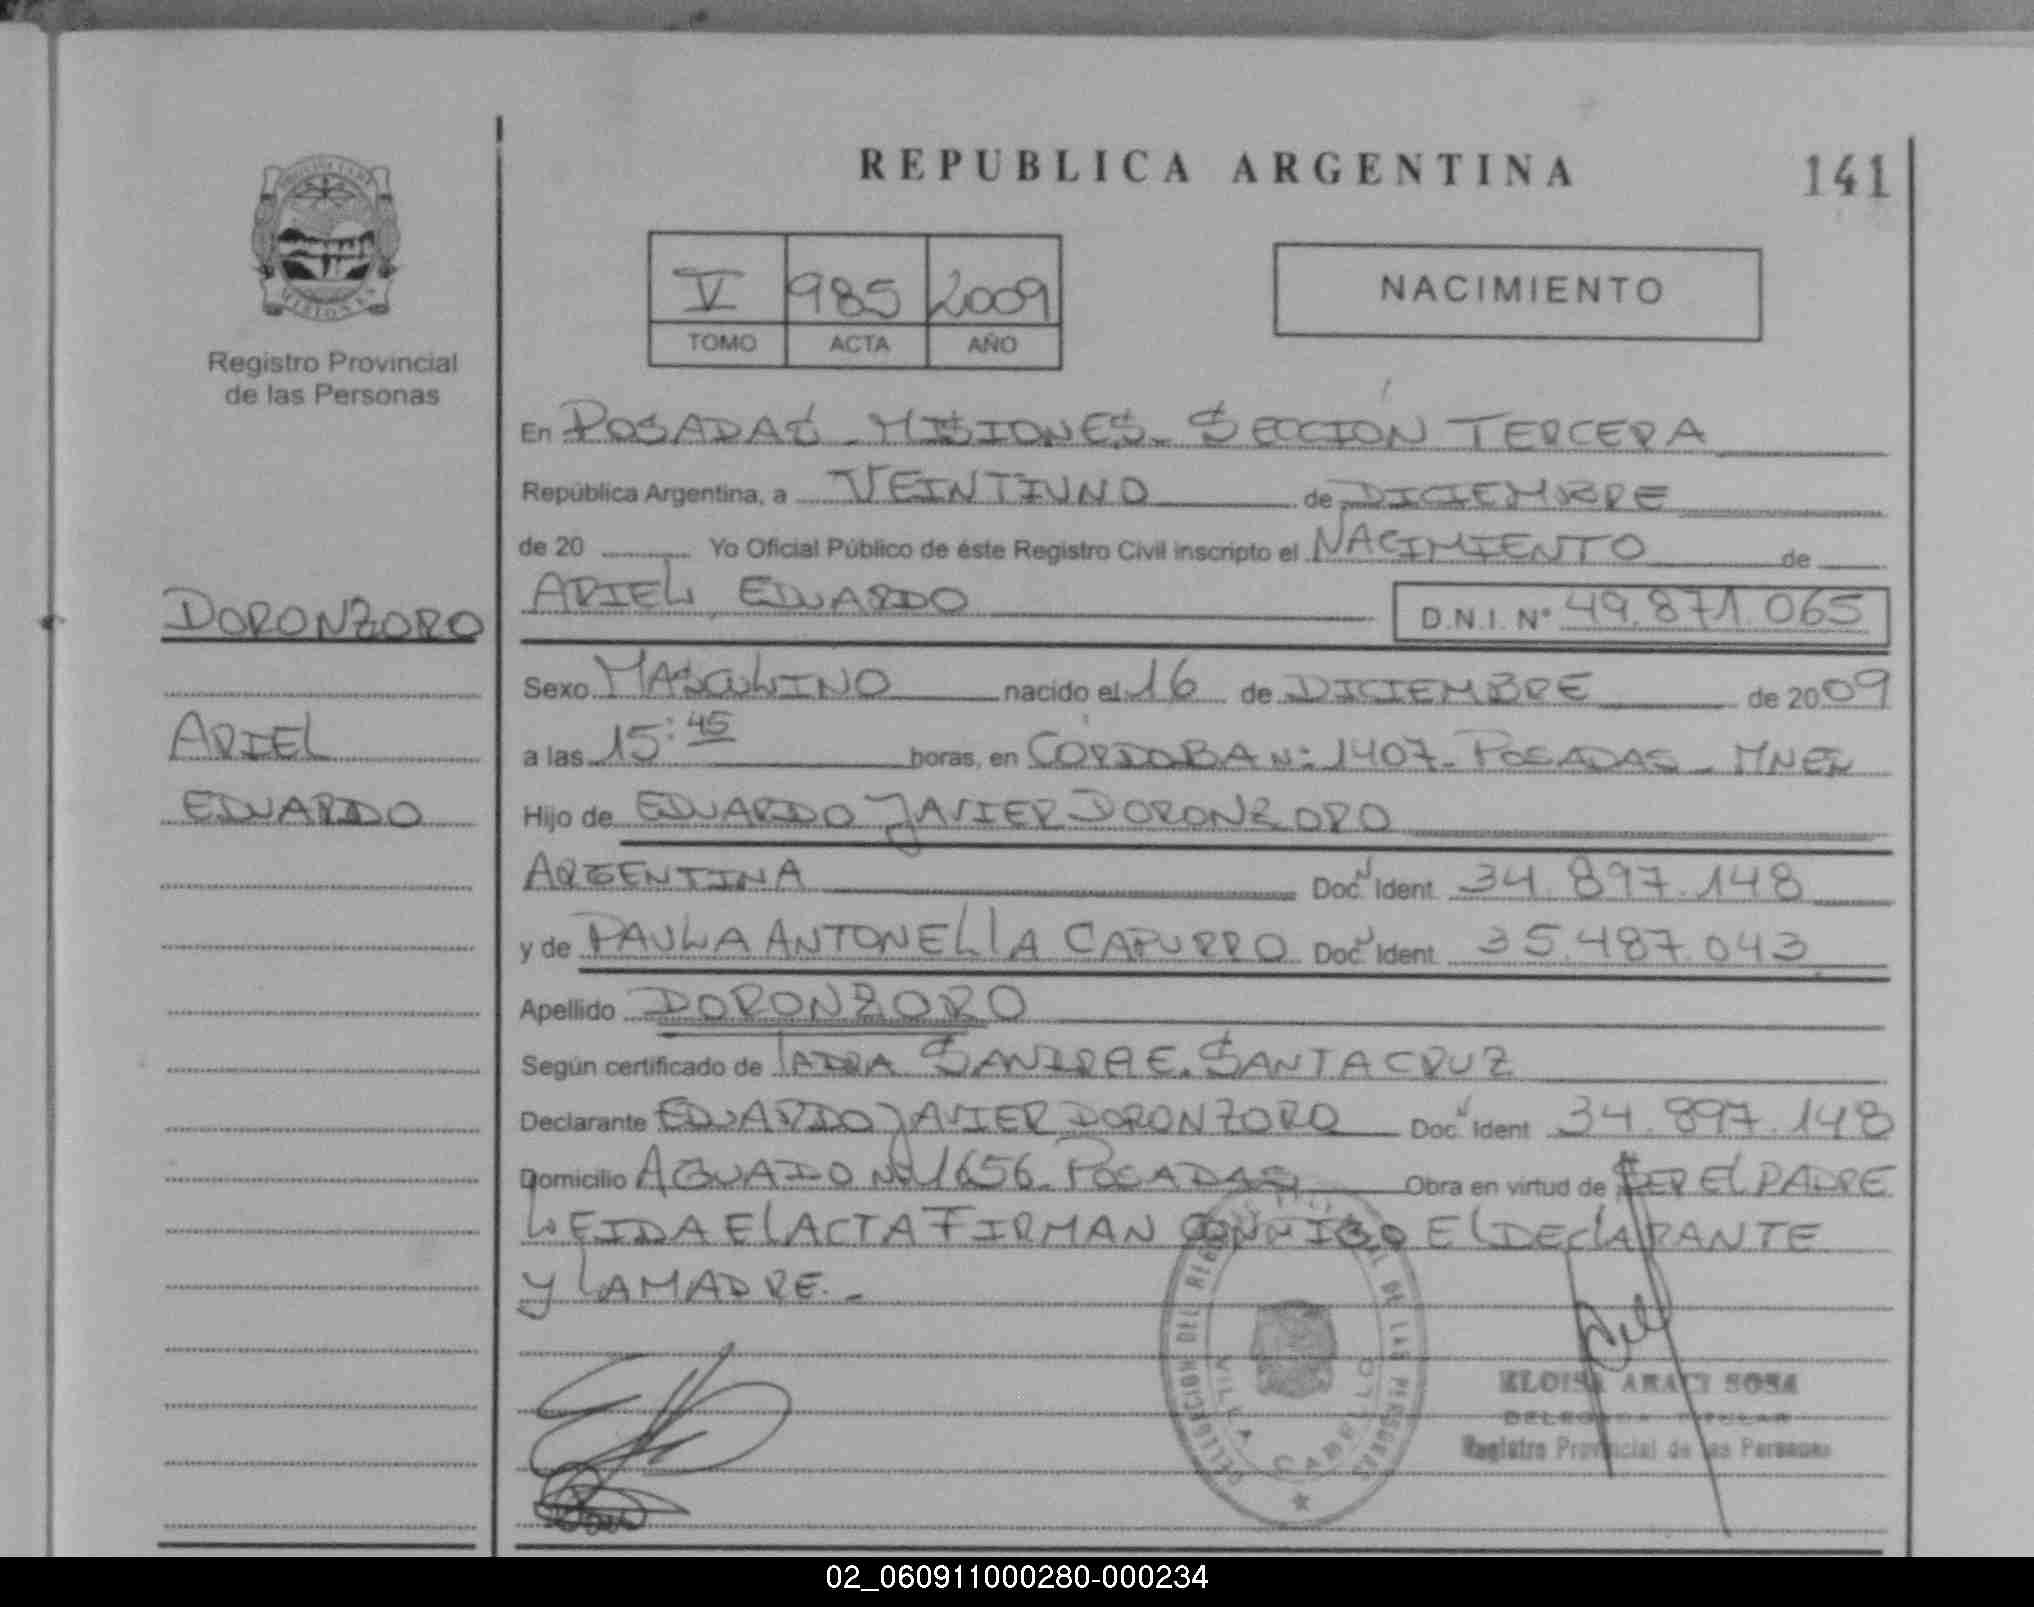 REPUBLICA ARGENTINA
141
V 985 2009
TOMO ACTA AÑO
NACIMIENTO
MISIONES
Registro Provincial
de las Personas
En POSADAS - MISIONES - SECCIÓN TERCERA
República Argentina, a VEINTIUNO de DICIEMBRE
de 20 Yo Oficial Público de éste Registro Civil inscripto el NACIMIENTO de
DORONZORO
ARIEL EDUARDO D.N.I. Nº 49.871.065
Sexo MASCULINO nacido el 16 de DICIEMBRE de 2009
ARIEL
a las 15:45 horas, en CÓRDOBA N: 1407 - POSADAS - MNES
EDUARDO
Hijo de EDUARDO JAVIER DORONZORO
ARGENTINA Doc. Ident. 34.897.148
y de PAULA ANTONELLA CAPURRO Doc. Ident. 35.487.043
Apellido DORONZORO
Según certificado de SANTACRUZ
Declarante EDUARDO JAVIER DORONZORO Doc. Ident 34.897.148
Domicilio AGUADO Nº 1656 - POSADAS Obra en virtud de SER EL PADRE
LEIDA EL ACTA FIRMAN CONMIGO EL DECLARANTE
Y LA MADRE. -
DELEGACION DEL REGISTRO PROVINCIAL DE LAS PERSONAS
VILLA CABELLO
ELOISA ARACI SOSA
DELEGADA TITULAR
Registro Provincial de las Personas
02_060911000280-000234